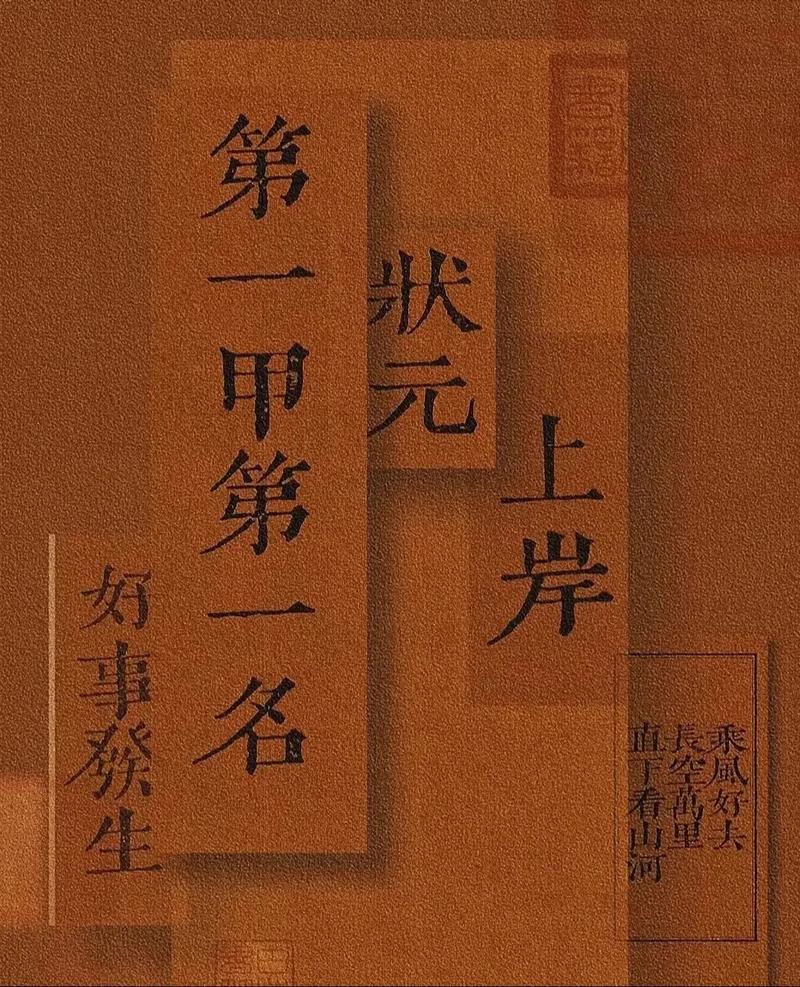 上岸
狀元
第一甲第一名
好事發生
乘風好去
長空萬里
直下看山河